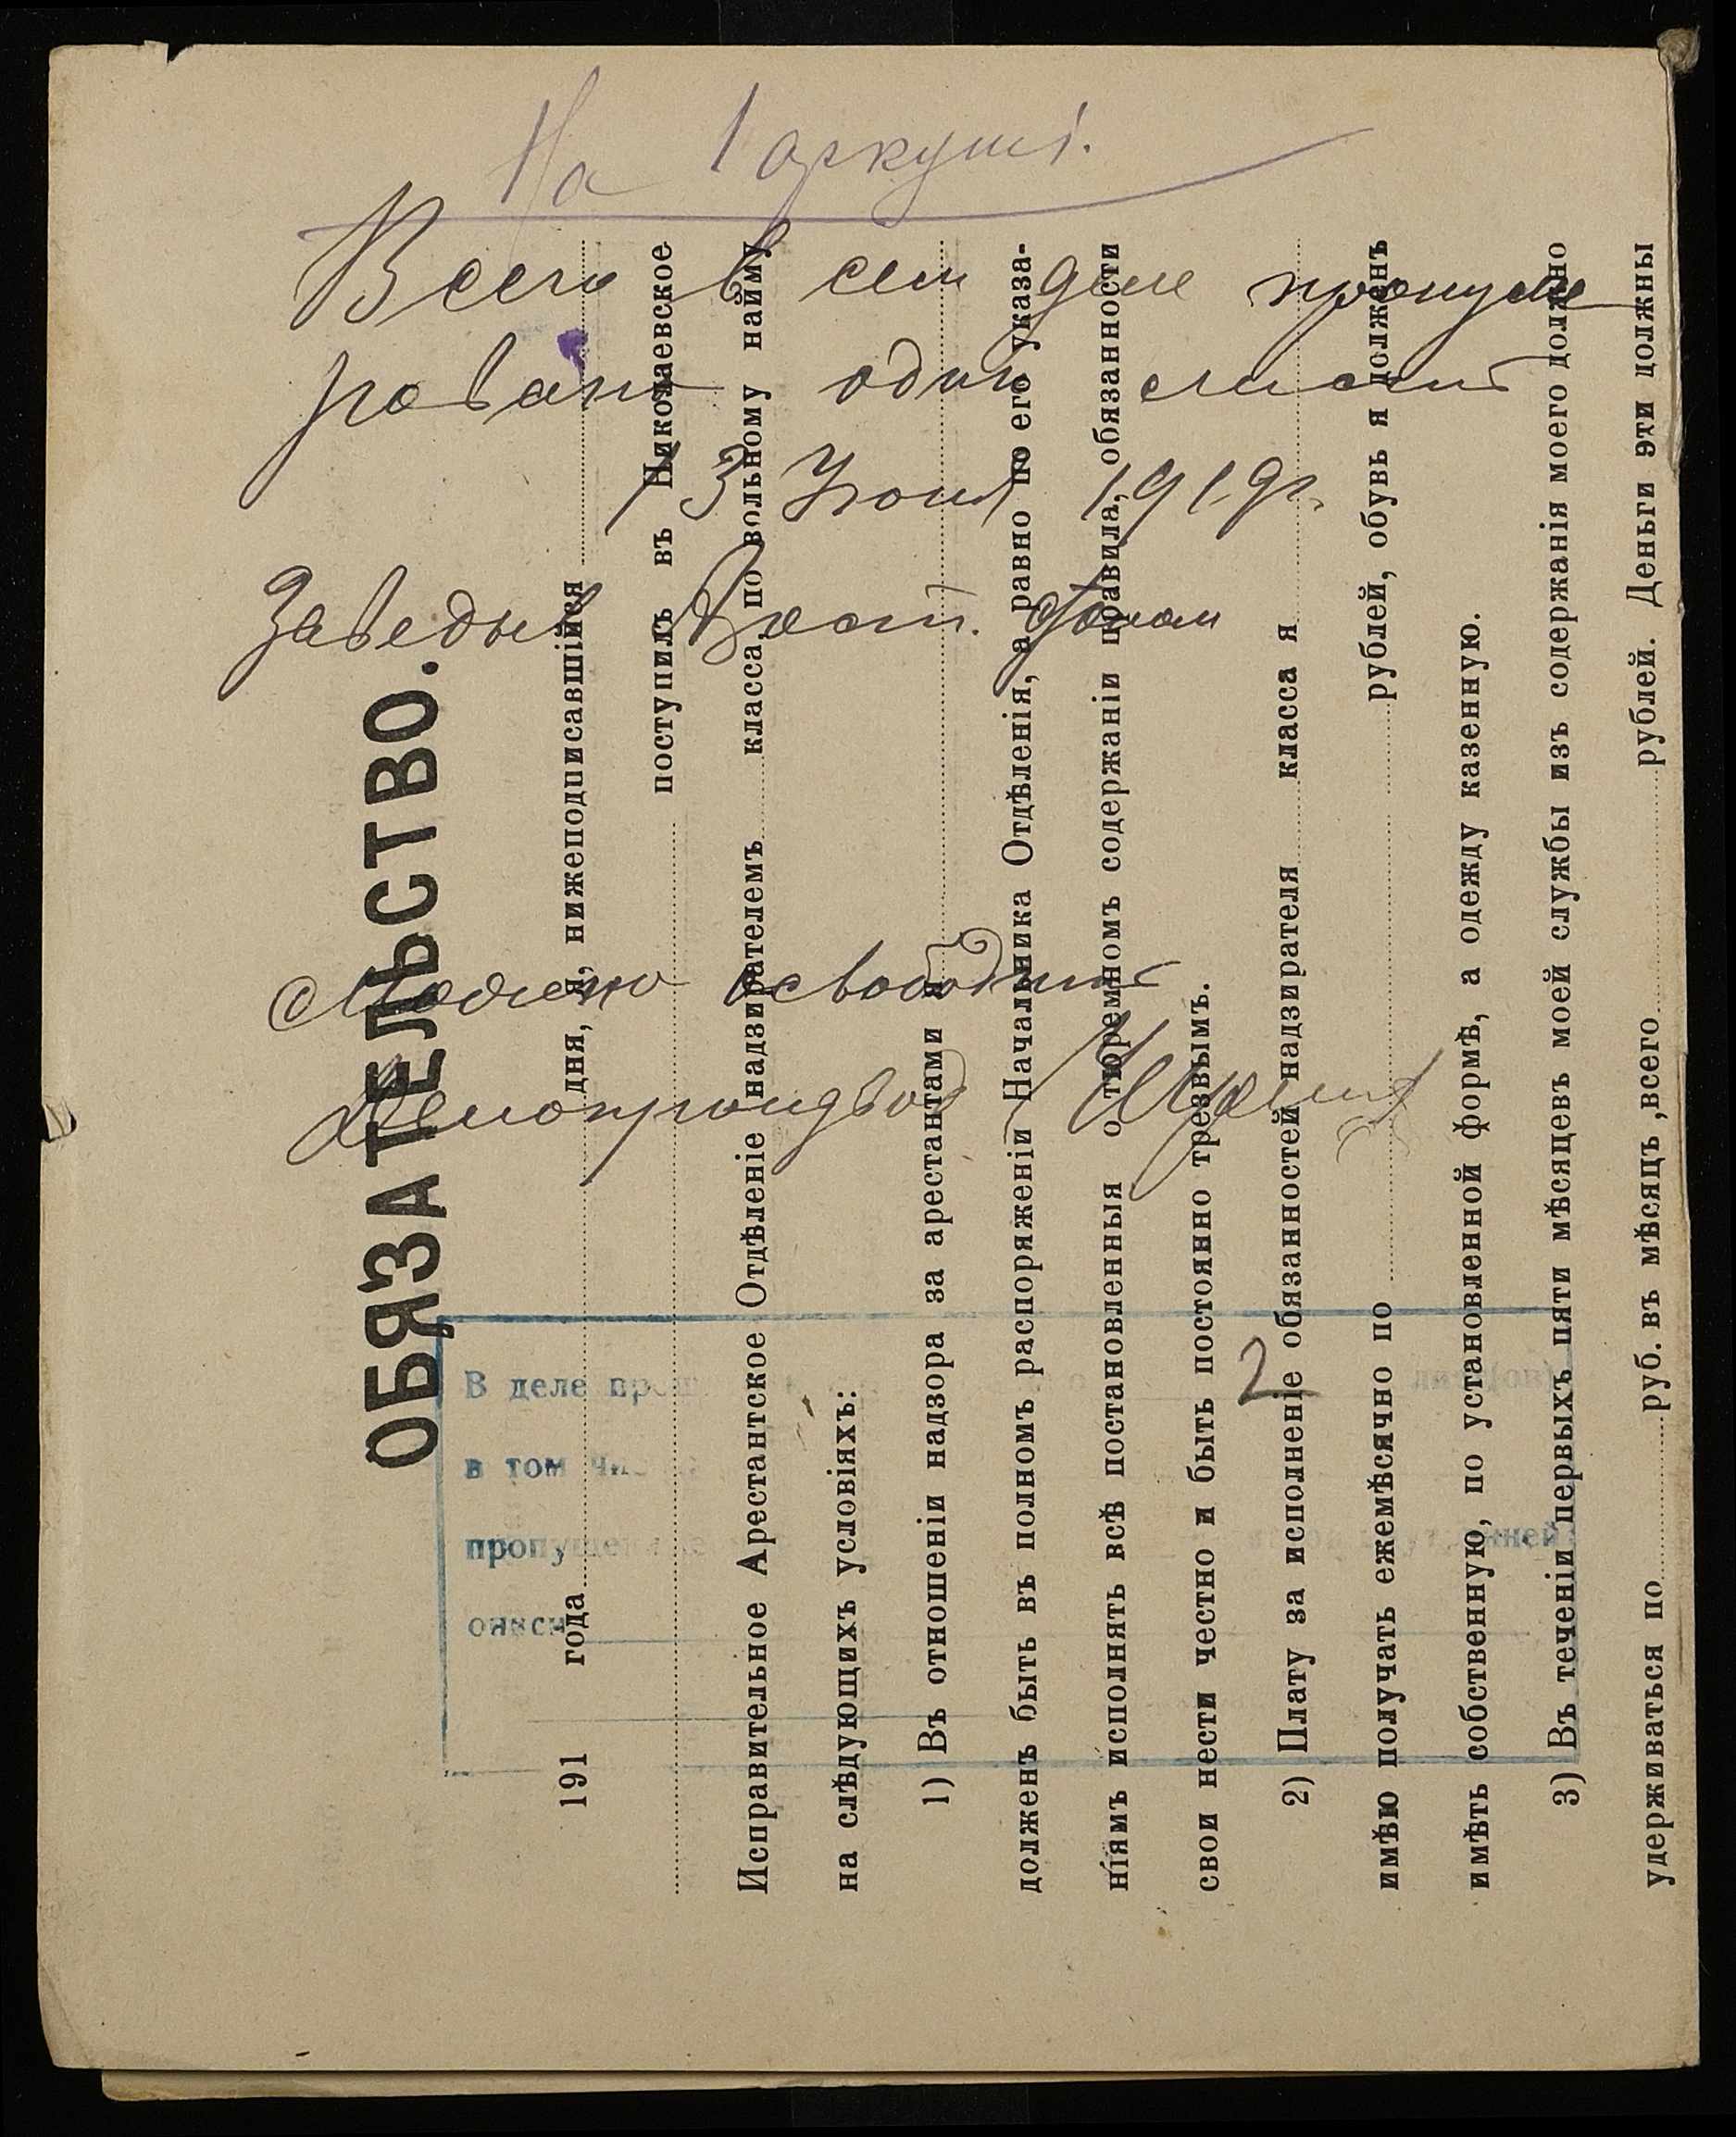 На 1 аркуші.
Всего в сем деле пронуме
ровано один лист
13 Июня 1919 г.
Заведыв
Можно освободить
Делопроизвод
ОБЯЗАТЕЛЬСТВО.
191 года дня, я, нижеподписавшійся
поступилъ въ Николаевское
Исправительное Арестантское Отдѣленіе надзирателемъ класса, по вольному найму
на слѣдующихъ условіяхъ:
1) Въ отношеніи надзора за арестантами я
долженъ быть въ полномъ распоряженіи Начальника Отдѣленія, а равно по его указа-
ніямъ исполнять всѣ постановленныя о тюремномъ содержаніи правила, обязанности
свои нести честно и быть постоянно трезвымъ.
2) Плату за исполненіе обязанностей надзирателя класса я
имѣю получать ежемѣсячно по рублей, обувь я долженъ
имѣть собственную, по установленной формѣ, а одежду казенную.
3) Въ теченіи первыхъ пяти мѣсяцевъ моей службы изъ содержанія моего должно
удерживаться по руб. въ мѣсяцъ, всего рублей. Деньги эти должны
В деле
2
лист(ов)
в том числе
пропущенные
описи